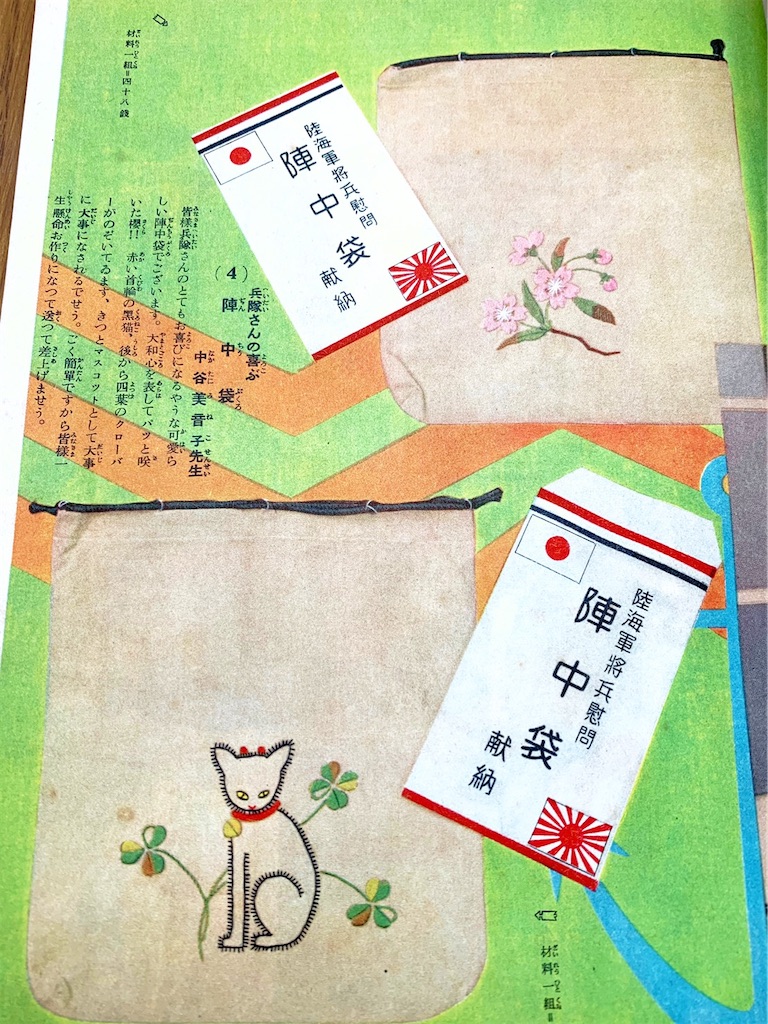 陸海軍將兵慰問
陣中袋
献納
兵隊さんの喜ぶ
(4)
陣中袋
中谷美音子先生
皆様兵隊さんのとてもお喜びになるやうな可愛ら
しい陣中袋でございます。大和心を表してパッと咲
いた櫻!! 赤い首輪の黒猫、後から四葉のクローバ
ーがのぞいてゐます、きつとマスコットとして大事
に大事になされるでせう。ごく簡單ですから皆様一
生懸命お作りになつて送つて差上げませう。
材料一組=四十八錢
陸海軍將兵慰問
陣中袋
献納
材料一組=